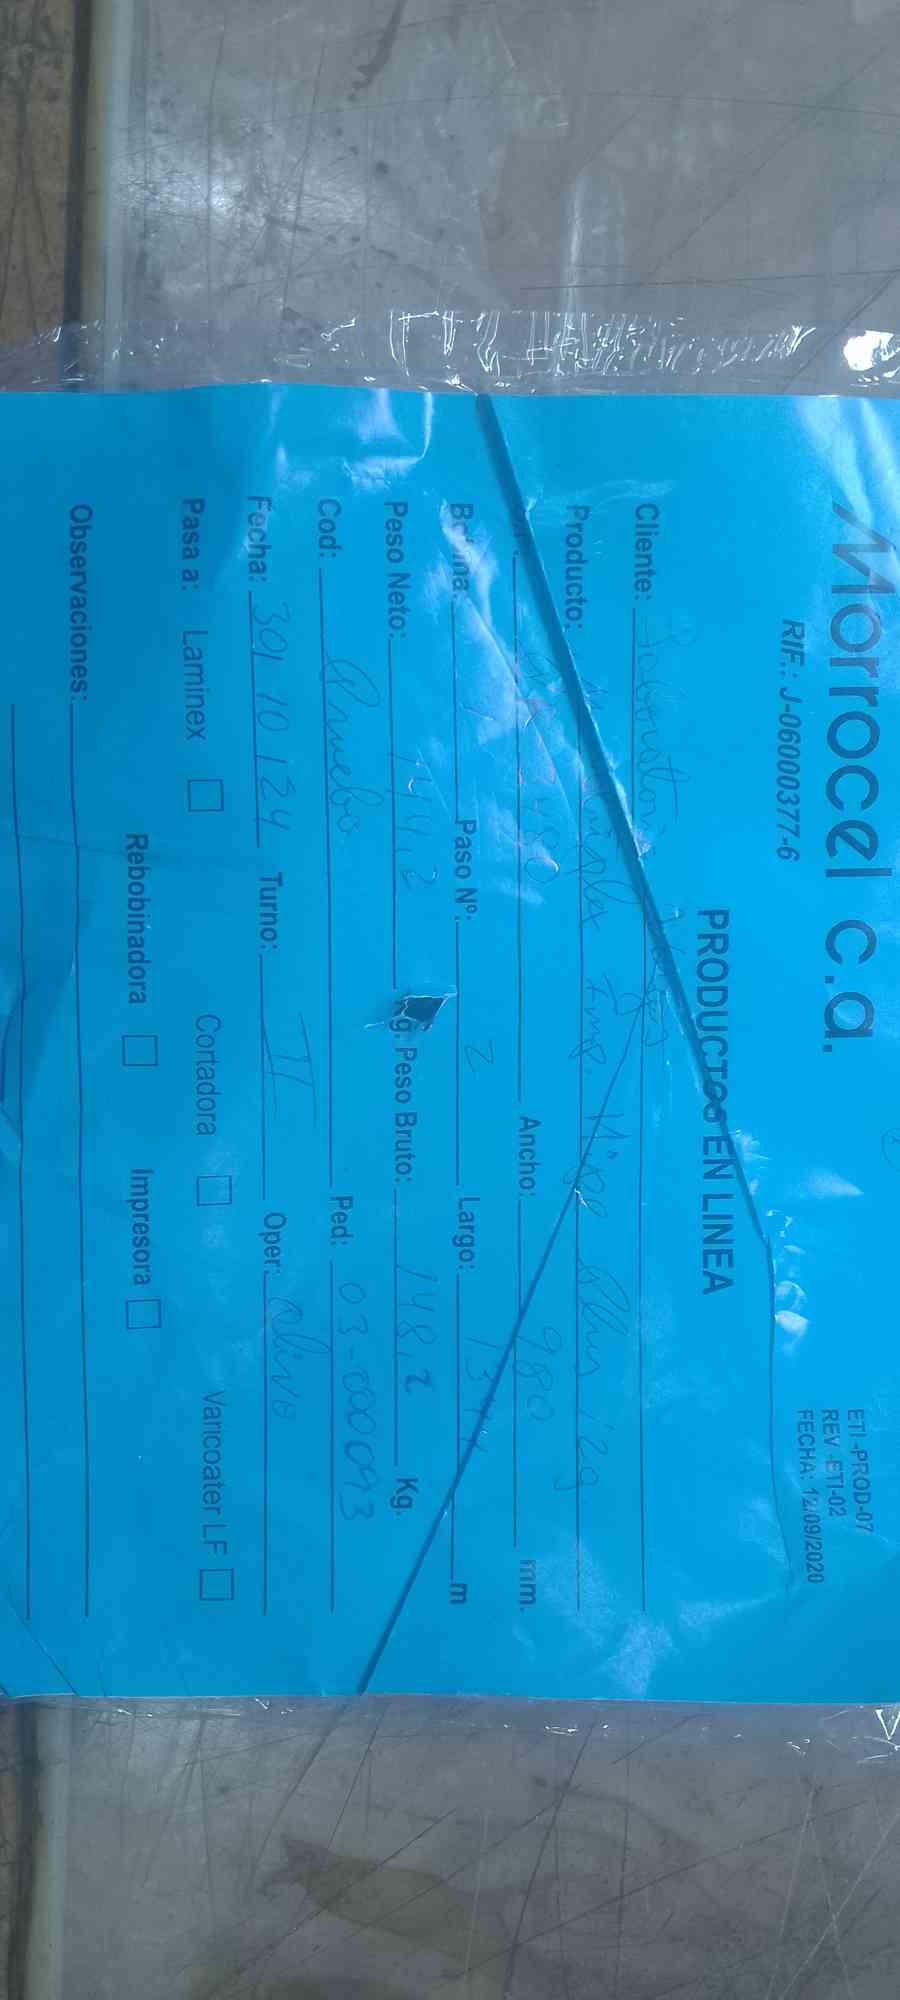 Morrocel c.a.
RIF.: J-06000377-6
ETI-PROD-07
REV-ETI-02
FECHA: 12/09/2020
PRODUCTOS EN LINEA
Cliente: Vargas
Producto: Imp. Hipo 129
480 Ancho: 980 mm.
Bobina: Paso Nº: 2 Largo: m
Peso Neto: 144,2 Kg. Peso Bruto: 148,2 Kg.
Cod: Prueba Ped: 03-000093
Fecha: 30/10/24 Turno: II Oper: Olivo
Pasa a: Laminex Cortadora Varicoater LF
Rebobinadora Impresora
Observaciones: